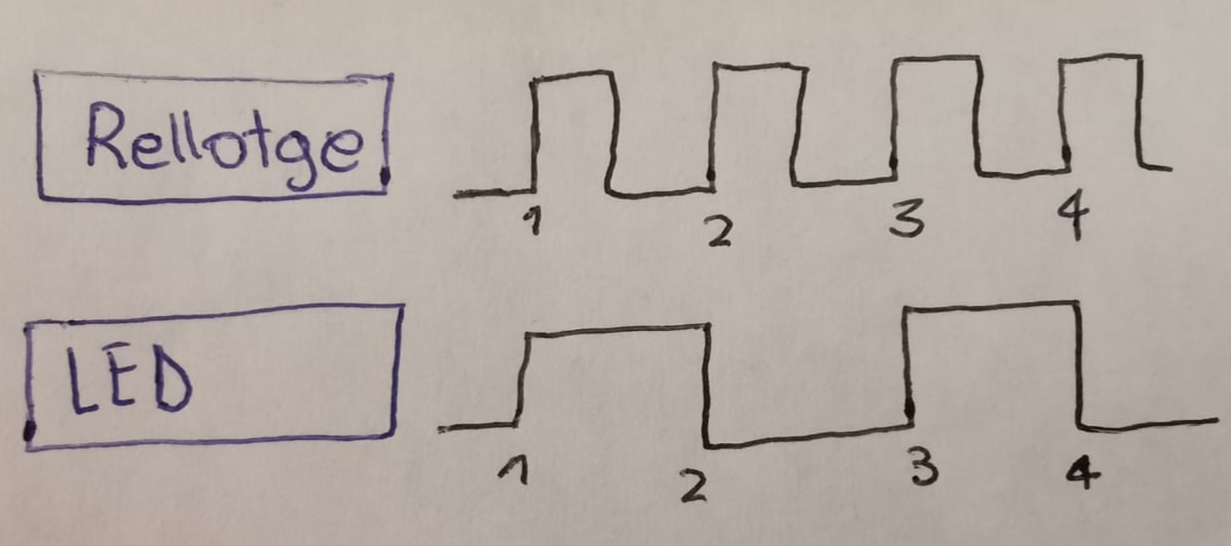 Rellotge
1 2 3 4
LED
1 2 3 4